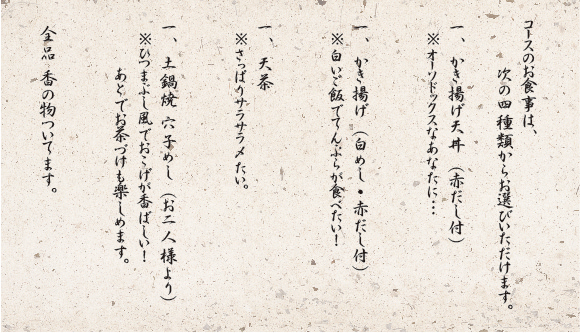 コースのお食事は、
次の四種類からお選びいただけます。
一、かき揚げ天丼（赤だし付）
※オーソドックスなあなたに…
一、かき揚げ（白めし・赤だし付）
※白いご飯でてんぷらが食べたい！
一、天茶
※さっぱりサラサラ〆たい。
一、土鍋焼 穴子めし（お二人様より）
※ひつまぶし風でおこげが香ばしい！
あとでお茶づけも楽しめます。
全品 香の物ついてます。